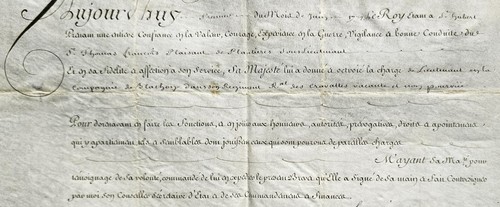 Aujourdhui du Mois de Juin Le Roy Etant a St hubert
Prenant une entiere Confiance en la Valeur, Courage, Experience en la Guerre, Vigilance & bonne Conduite du
Sr. Thomas francois Plaisant de Sous lieutenant
Et en sa fidelité & affection a son Service, Sa Majesté lui a donné & octroié la charge de Lieutenant en la
Compagnie de dans son Regiment Ral. des Cravattes vacante
Pour dorenavant en faire les fonctions, & en jouir aux honneurs, autorités, prérogatives, droits & apointemens
qui y apartiennent tels & semblables dont jouissent ceux qui sont pourvus de pareilles charges
M'ayant Sa Maté. pour
temoignage de sa volonté, commandé de lui en expedier le present Brevet qu'Elle a signé de sa main & fait Contresigner
par moi son Conseiller Secretaire d'Etat & de ses Commandemens & Finances.